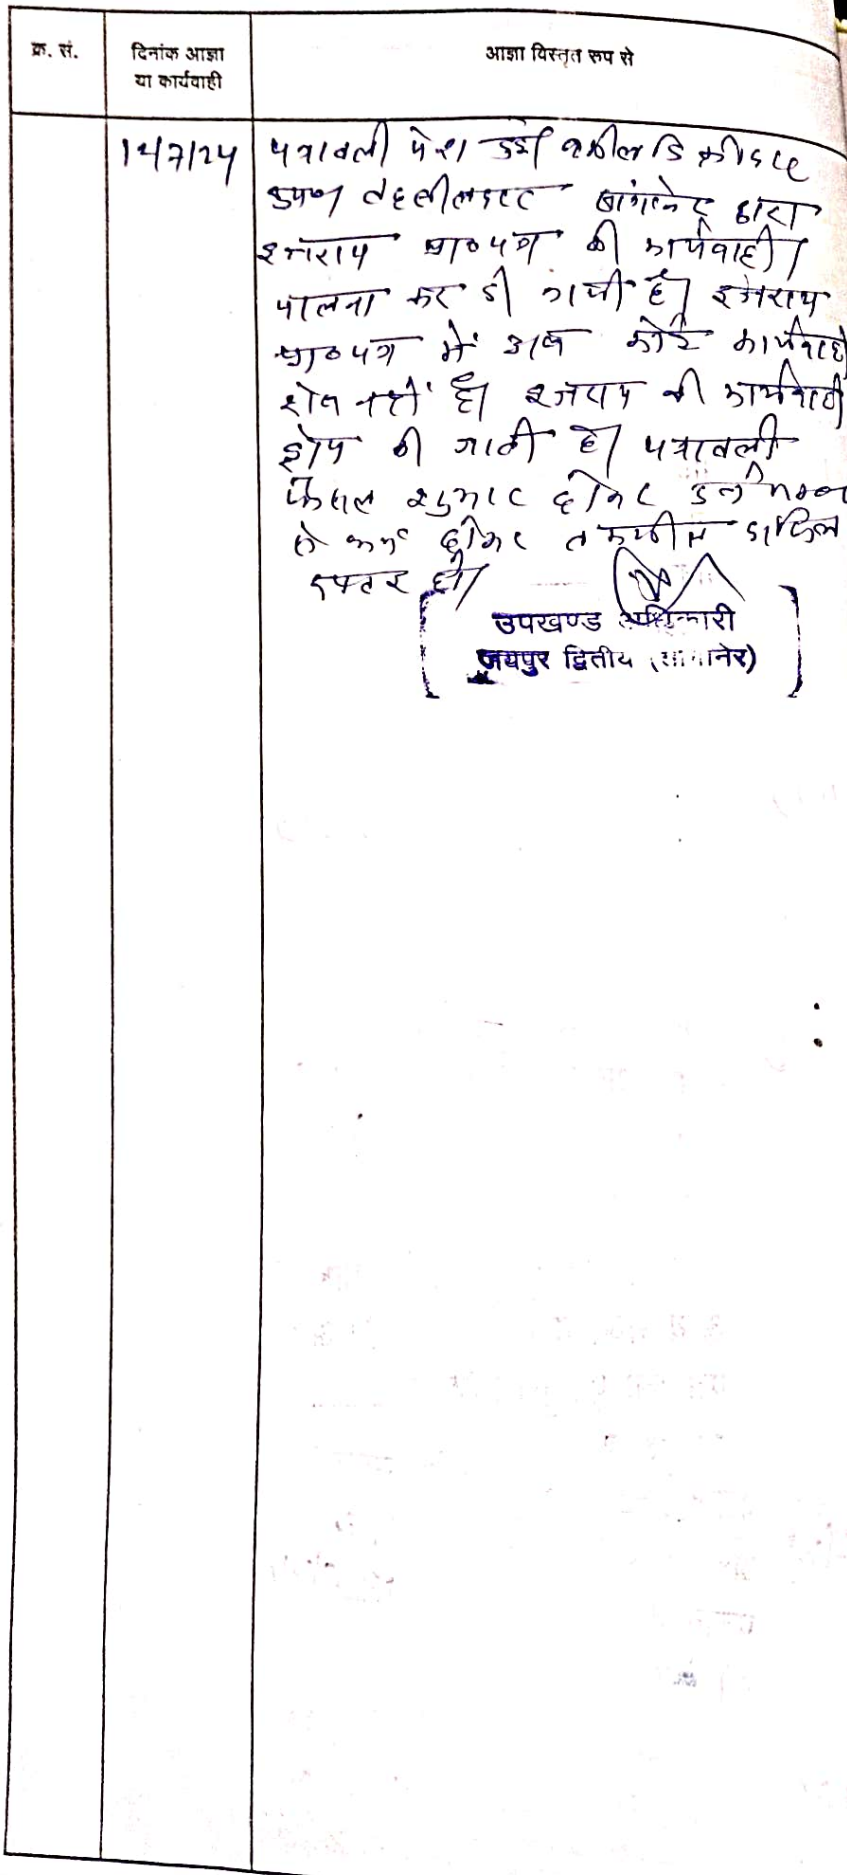 क्र. सं.
दिनांक आज्ञा
या कार्यवाही
आज्ञा विस्तृत रूप से
पत्रावली पेश हुई वकील डिक्रीदार
उप० तहसीलदार सांगानेर द्वारा
इजराय प्रा०पत्र की कार्यवाही/
पालना कर दी गयी है। इजराय
प्रा०पत्र में अब कोई कार्यवाही
शेष नहीं है। इजराय की कार्यवाही
की जाती है। पत्रावली
फैसल शुमार होकर
से कम होकर दाखिल
दफ्तर हो।
उपखण्ड अधिकारी
जयपुर द्वितीय (सांगानेर)